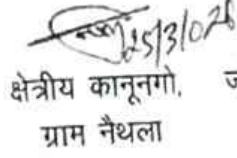 25/3/026
क्षेत्रीय कानूनगो,
ग्राम नैथला